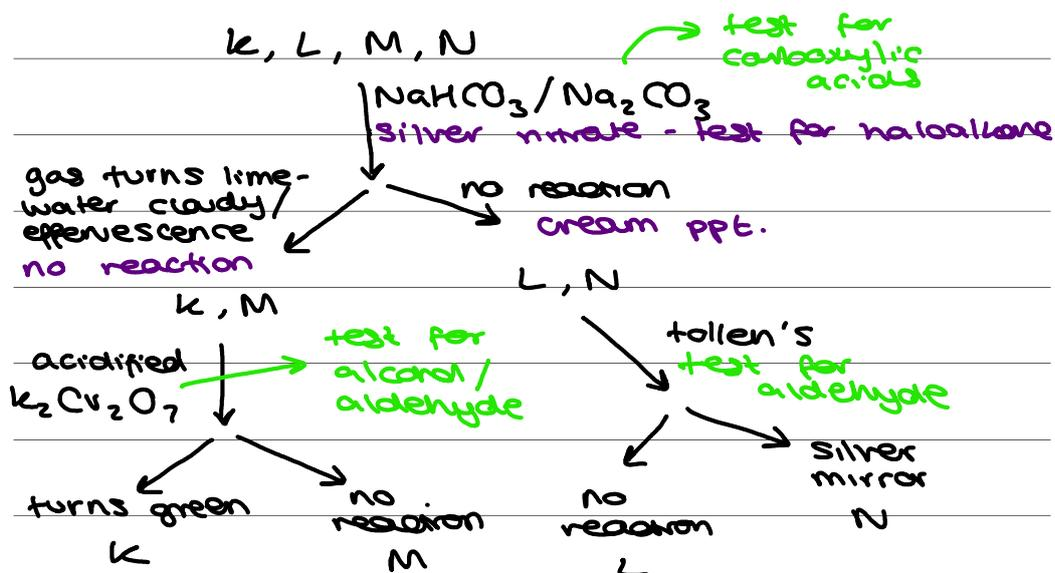 K, L, M, N
test for
carboxylic
acids
NaHCO₃ / Na₂CO₃
silver nitrate - test for haloalkane
gas turns lime-
water cloudy/
effervescence
no reaction
no reaction
cream ppt.
K, M
L, N
acidified
K₂Cr₂O₇
test for
alcohol/
aldehyde
tollen's
test for
aldehyde
turns green
K
no
reaction
M
no
reaction
L
silver
mirror
N